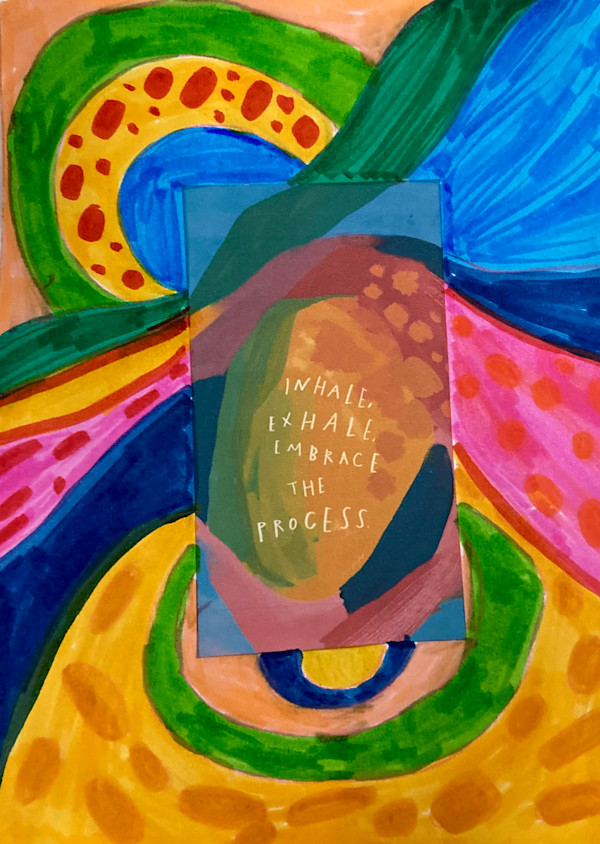 INHALE,
EXHALE,
EMBRACE
THE
PROCESS.